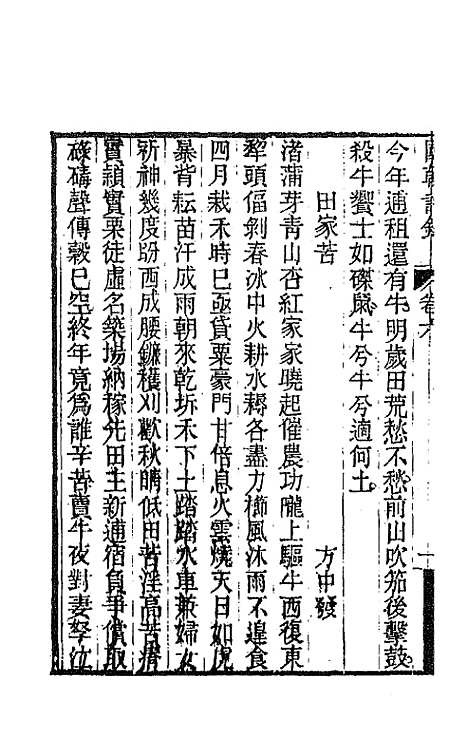 今年逋租還有牛明歲田荒愁不愁前山吹笳後擊鼓
殺牛饗士如磔鼠牛兮牛兮適何土
田家苦 方中發
渚蒲芽青山杏紅家家曉起催農功隴上驅牛西復東
犂頭偪剝春冰中火耕水耨各盡力櫛風沐雨不遑食
四月栽禾時已亟貸粟豪門甘倍息火雲燒天日如虎
暴背耘苗汗成雨朝來乾坼禾下土踏踏水車兼婦女
祈神幾度盼西成腰鐮穫刈歡秋晴低田苦淫高苦瘠
實穎實粟徒虛名築場納稼先田主新逋宿負爭償取
碌碡聲傳穀已空終年竟爲誰辛苦賣牛夜對妻孥泣
卷六